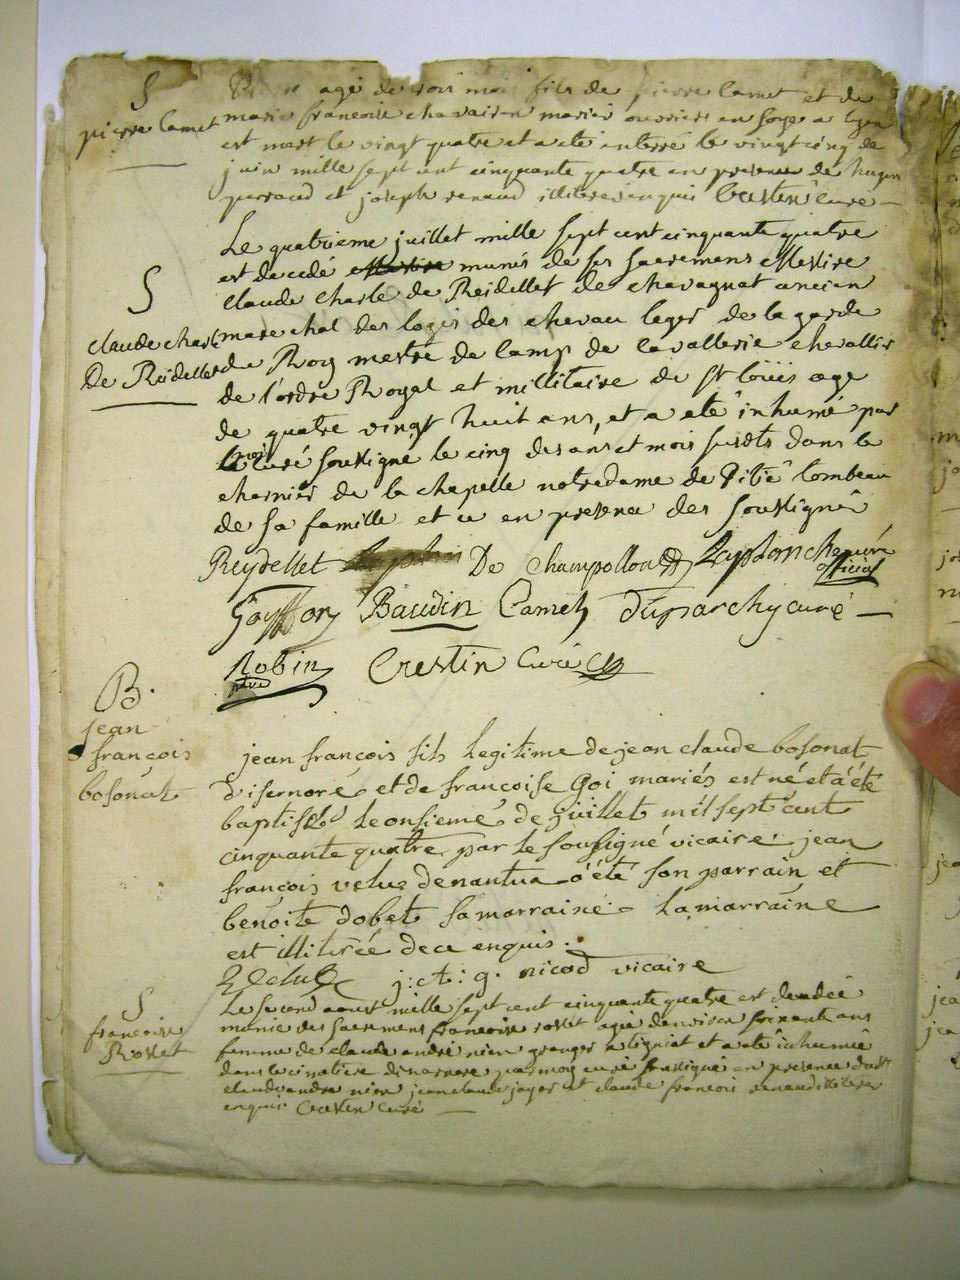 S
pierre Camet
agé de trois mois fils de pierre Camet et de
marie francoise chavairon mariés ouvriers en soye a Lyon
est mort le vingt quatre et a eté enterré le vingt cinq de
juin mille sept cent cinquante quatre en presence de hugue
perraud et joseph renaud illiteres enquis Crestin curé
S
claude charle
De Reidellet
Le quatrieme juillet mille sept cent cinquante quatre
est decedé munis de ses sacremens Messire
claude charle de Reidellet de chavagnat ancien
marechal des logis des chevau legers de la garde
du Roy mestre de camp de cavallerie chevallier
de l'ordre Royal et millitaire de St loüis age
de quatre vingt huit ans, et a eté inhumé par
moi curé soussigné le cinq des an et mois susdts dans le
charnier de la chapelle notredame de Pitié tombeau
de sa famille et ce en presence des soussignés
Reydellet De Champollon Laplanche curé
official
Goyffon Baudin Camet duparchy curé
Robin Crestin Curé
B.
jean
françois
bosonat
jean françois fils legitime de jean claude bosonat
d'isernore et de françoise Goi mariés est né et a été
baptisé le onsieme de juillet mil sept cent
cinquante quatre par le sousigné vicaire jean
françois veluz de nantua a été son parrain et
benoite dobet sa marraine. La marraine
est illiterée de ce enquis.
j: ct: g. nicod vicaire
S
francoise
Rosset
Le second aoust mille sept cent cinquante quatre est decedée
munie des sacremens francoise rosset agée denviron soixante ans
femme de claude andré nier granger a tigniat et a eté inhumée
dans le cimetiere disernore par moy curé soussigné en presence dudt
claude andre nier jean claude jager et claude francois renaud illiteres
enquis Crestin curé